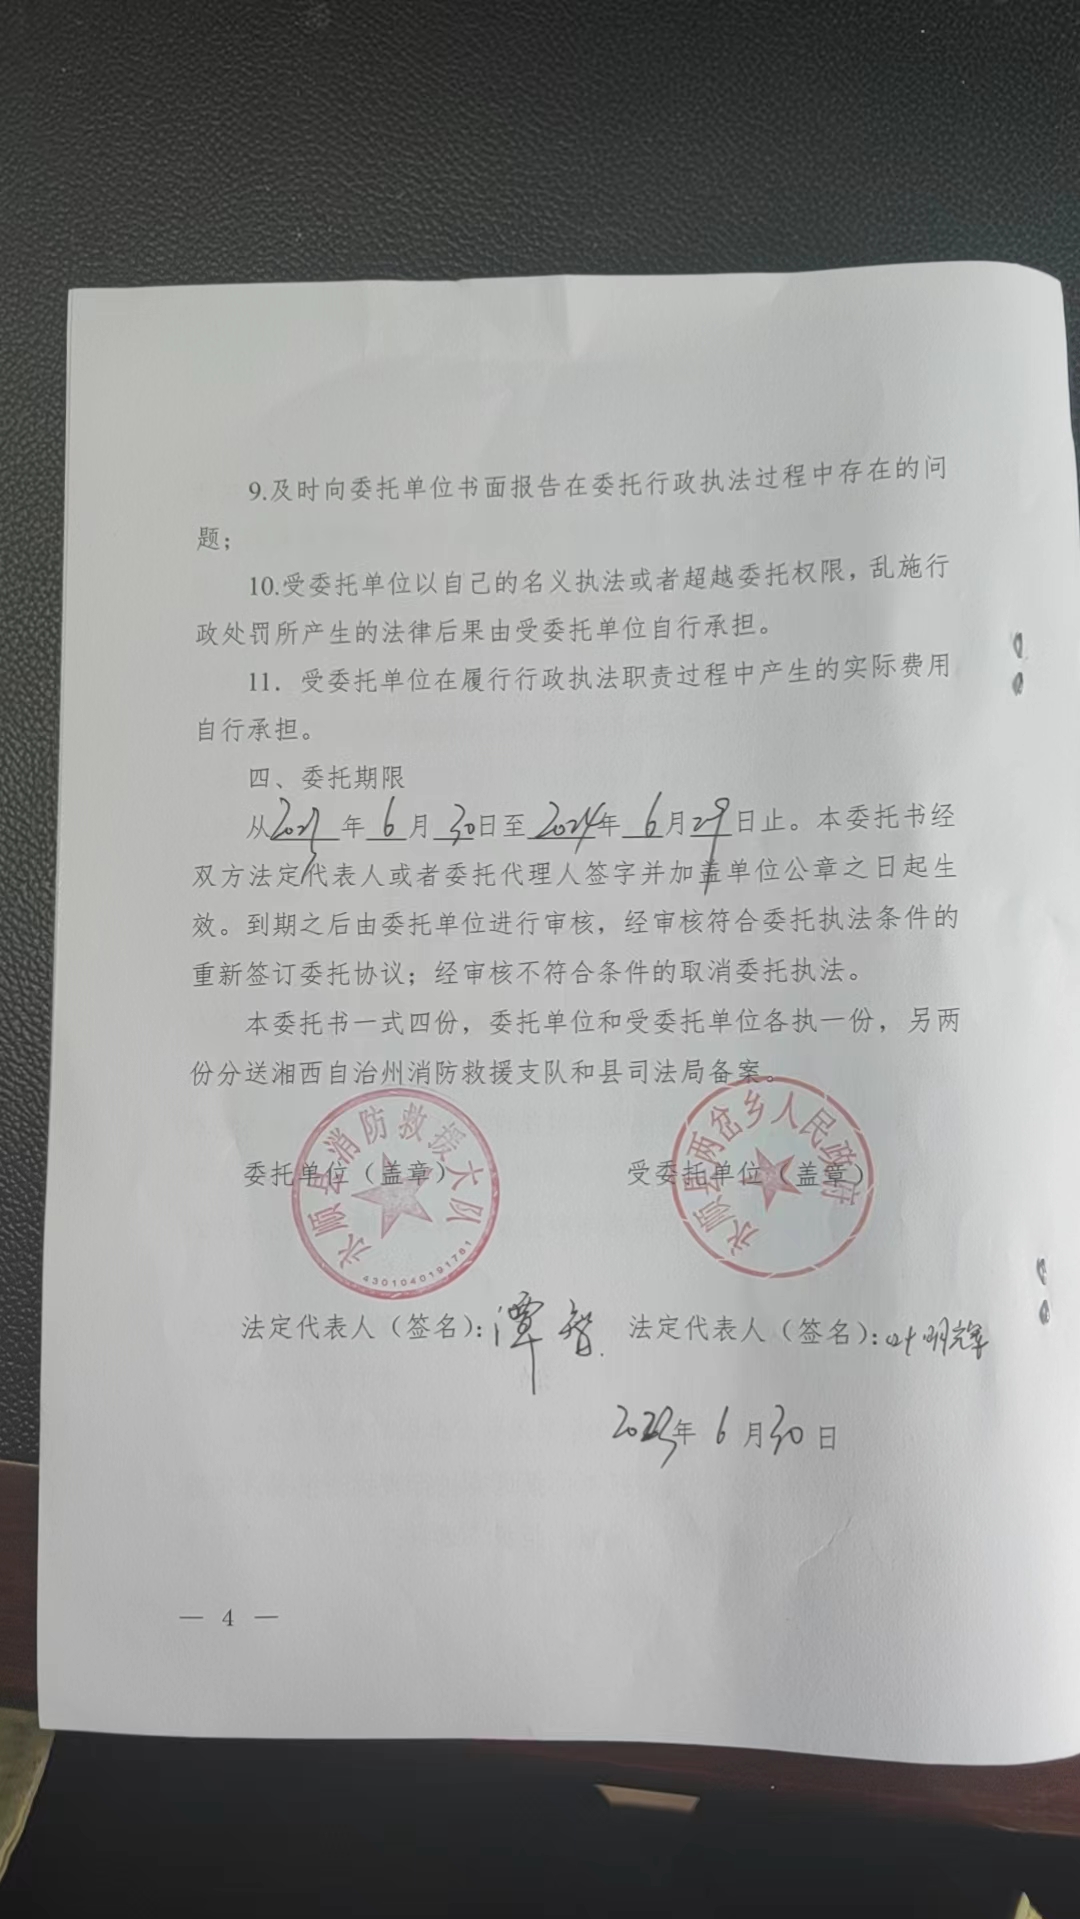 9.及时向委托单位书面报告在委托行政执法过程中存在的问
题；
10.受委托单位以自己的名义执法或者超越委托权限，乱施行
政处罚所产生的法律后果由受委托单位自行承担。
11. 受委托单位在履行行政执法职责过程中产生的实际费用
自行承担。
四、委托期限
从2023年6月30日至2024年6月29日止。本委托书经
双方法定代表人或者委托代理人签字并加盖单位公章之日起生
效。到期之后由委托单位进行审核，经审核符合委托执法条件的
重新签订委托协议；经审核不符合条件的取消委托执法。
本委托书一式四份，委托单位和受委托单位各执一份，另两
份分送湘西自治州消防救援支队和县司法局备案。
委托单位（盖章） 受委托单位（盖章）
永顺县消防救援大队
4301040191761
永顺县两岔乡人民政府
法定代表人（签名）：谭智 法定代表人（签名）：叶明辉
2023年6月30日
— 4 —